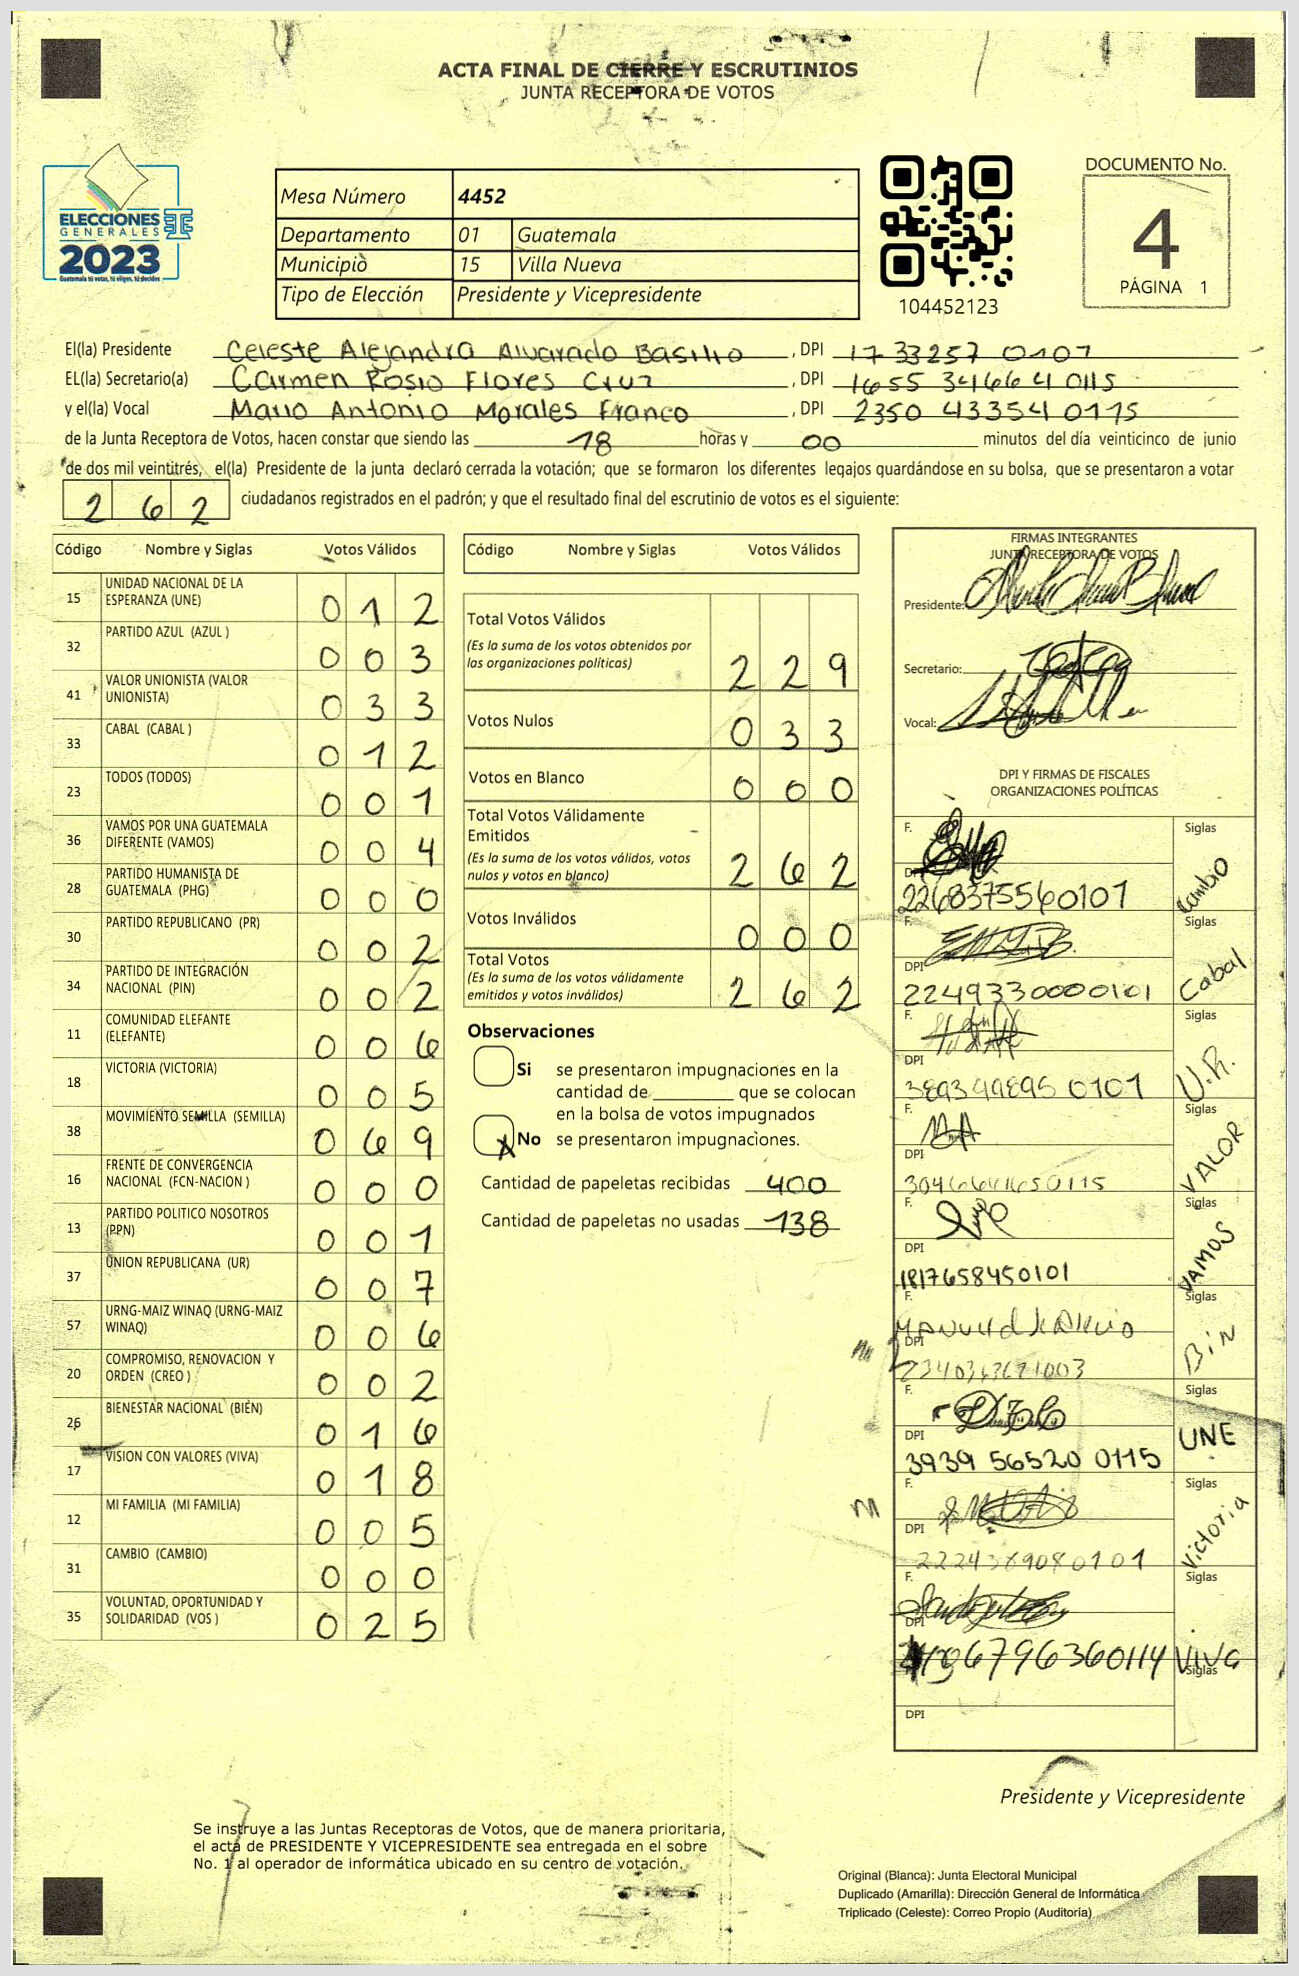 ACTA FINAL DE CIERRE Y ESCRUTINIOS
JUNTA RECEPTORA DE VOTOS
ELECCIONES
GENERALES
2023
Guatemala tú votas, tú eliges, tú decides
Mesa Número 4452
Departamento 01 Guatemala
Municipio 15 Villa Nueva
Tipo de Elección Presidente y Vicepresidente
104452123
DOCUMENTO No.
4
PÁGINA 1
El(la) Presidente Celeste Alejandra Alvarado Basilio, DPI 17 33257 0107
EL(la) Secretario(a) Carmen Rosio Flores Cruz, DPI 1655 34664 0115
y el(la) Vocal Mario Antonio Morales Franco, DPI 2350 43354 0115
de la Junta Receptora de Votos, hacen constar que siendo las 18 horas y 00 minutos del día veinticinco de junio
de dos mil veintitrés, el(la) Presidente de la junta declaró cerrada la votación; que se formaron los diferentes legajos guardándose en su bolsa, que se presentaron a votar
262 ciudadanos registrados en el padrón; y que el resultado final del escrutinio de votos es el siguiente:
Código Nombre y Siglas Votos Válidos
15 UNIDAD NACIONAL DE LA ESPERANZA (UNE) 0 1 2
32 PARTIDO AZUL (AZUL ) 0 0 3
41 VALOR UNIONISTA (VALOR UNIONISTA) 0 3 3
33 CABAL (CABAL ) 0 1 2
23 TODOS (TODOS) 0 0 1
36 VAMOS POR UNA GUATEMALA DIFERENTE (VAMOS) 0 0 4
28 PARTIDO HUMANISTA DE GUATEMALA (PHG) 0 0 0
30 PARTIDO REPUBLICANO (PR) 0 0 2
34 PARTIDO DE INTEGRACIÓN NACIONAL (PIN) 0 0 2
11 COMUNIDAD ELEFANTE (ELEFANTE) 0 0 6
18 VICTORIA (VICTORIA) 0 0 5
38 MOVIMIENTO SEMILLA (SEMILLA) 0 6 9
16 FRENTE DE CONVERGENCIA NACIONAL (FCN-NACION ) 0 0 0
13 PARTIDO POLITICO NOSOTROS (PPN) 0 0 1
37 UNION REPUBLICANA (UR) 0 0 7
57 URNG-MAIZ WINAQ (URNG-MAIZ WINAQ) 0 0 6
20 COMPROMISO, RENOVACION Y ORDEN (CREO ) 0 0 2
26 BIENESTAR NACIONAL (BIEN) 0 1 6
17 VISION CON VALORES (VIVA) 0 1 8
12 MI FAMILIA (MI FAMILIA) 0 0 5
31 CAMBIO (CAMBIO) 0 0 0
35 VOLUNTAD, OPORTUNIDAD Y SOLIDARIDAD (VOS ) 0 2 5
Código Nombre y Siglas Votos Válidos
Total Votos Válidos 2 2 9
(Es la suma de los votos obtenidos por
las organizaciones políticas)
Votos Nulos 0 3 3
Votos en Blanco 0 0 0
Total Votos Válidamente
Emitidos 2 6 2
(Es la suma de los votos válidos, votos
nulos y votos en blanco)
Votos Inválidos 0 0 0
Total Votos 2 6 2
(Es la suma de los votos válidamente
emitidos y votos inválidos)
Observaciones
Si se presentaron impugnaciones en la
cantidad de ________ que se colocan
en la bolsa de votos impugnados
X No se presentaron impugnaciones.
Cantidad de papeletas recibidas 400
Cantidad de papeletas no usadas 138
FIRMAS INTEGRANTES
JUNTA RECEPTORA DE VOTOS
Presidente:
Secretario:
Vocal:
DPI Y FIRMAS DE FISCALES
ORGANIZACIONES POLÍTICAS
F. Siglas
DPI 2268375560101 Cambio
F. Siglas
DPI 22493300000101 Cabal
F. Siglas
DPI U.R.
F. Siglas
DPI VALOR
F. Siglas
DPI 1817658450101 VAMOS
F. Siglas
DPI Bin
F. Siglas
DPI 3939 56520 0115 UNE
F. Siglas
DPI Victoria
F. Siglas
DPI VIVA
Siglas
DPI
Presidente y Vicepresidente
Se instruye a las Juntas Receptoras de Votos, que de manera prioritaria,
el acta de PRESIDENTE Y VICEPRESIDENTE sea entregada en el sobre
No. 1 al operador de informática ubicado en su centro de votación.
Original (Blanca): Junta Electoral Municipal
Duplicado (Amarilla): Dirección General de Informática
Triplicado (Celeste): Correo Propio (Auditoría)